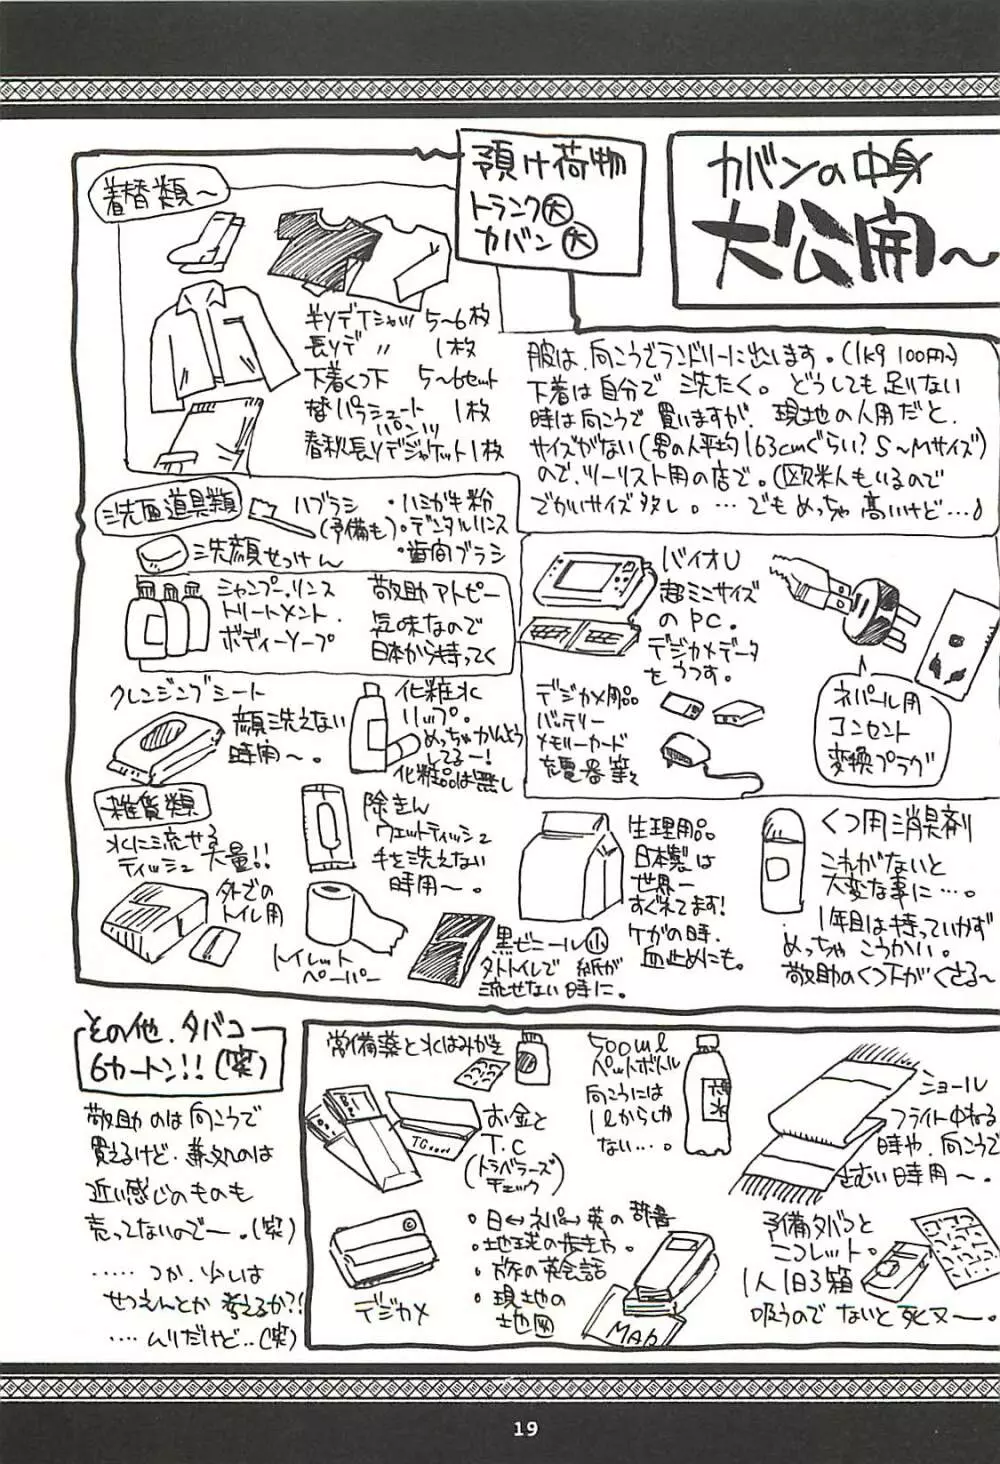 カバンの中身
大公開～
預け荷物
トランク大
カバン大
着替類～
半ソデTシャツ 5～6枚
長ソデ 〃 1枚
下着くつ下 5～6セット
替パラシュート 1枚
パンツ
春秋長ソデジャケット1枚
服は、向こうでランドリーに出します。(1kg 100円～)
下着は自分で 洗たく。どうしても足りない
時は向こうで買いますが、現地の人用だと、
サイズがない(男の人平均163cmぐらい?S～Mサイズ)
ので、ツーリスト用の店で。(欧米人もいるので
でかいサイズ多し。…でもめっちゃ高いけど…♪
洗面道具類
ハブラシ
(予備も)
・ハミガキ粉
。デンタルリンス
・歯間ブラシ
洗顔せっけん
シャンプー、リンス
トリートメント、
ボディーソープ
敬助アトピー
気味なので
日本から持ってく
クレンジングシート
顔洗えない
時用～。
化粧水
リップ。
めっちゃかんそう
してるー!
化粧品は無し
バイオU
超ミニサイズ
のPC。
デジカメデータ
をうつす。
デジカメ用品
バッテリー
メモリーカード
充電器等々
ネパール用
コンセント
変換プラグ
雑貨類
水に流せる
ティッシュ 大量!!
外での
トイレ用
除きん
ウェットティッシュ
手を洗えない
時用～。
トイレット
ペーパー
黒ビニール小
外トイレで 紙が
流せない時に。
生理用品
日本製は
世界一
すぐれてます!
ケガの時、
血止めにも。
くつ用消臭剤
これがないと
大変な事に…。
1年目は持っていかず
めっちゃこうかい。
敬助のくつ下がくさる～
その他、タバコ
6カートン!!(笑)
敬助のは向こうで
買えるけど、兼処のは
近い感じのものも
売ってないのでー。(笑)
……つか、少しは
せつえんとか考えるか?!
….ムリだけど…(笑)
常備薬と水はみがき
お金と
T.C
(トラベラーズ
チェック)
500ml
ペットボトル
向こうには
1lからしか
ない…。
ショール
フライト中ねる
時や、向こうで
さむい時用～。
デジカメ
・日↔ネパ↔英の辞書
・地球の歩き方。
・旅の英会話
・現地の
地図
MAP
予備タバコと
ニコレット。
1人1日3箱
吸うのでないと死ヌ～。
19